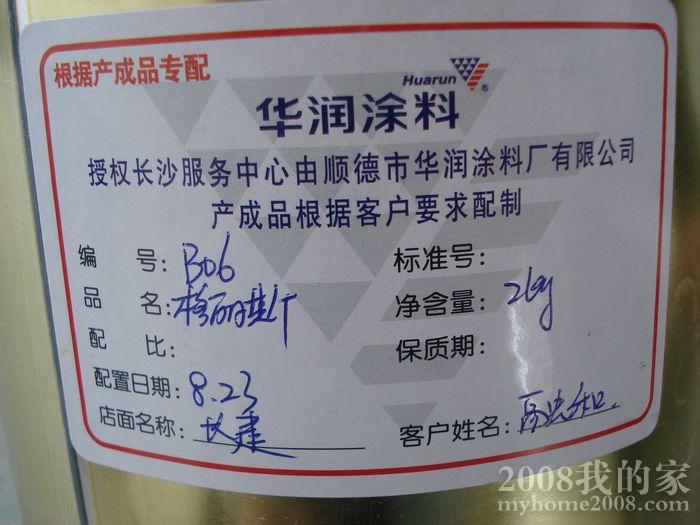 根据产成品专配
Huarun®
华润涂料
授权长沙服务中心由顺德市华润涂料厂有限公司
产成品根据客户要求配制
编 号：B06
标准号：
品 名：
净含量：2kg
配 比：
保质期：
配置日期：8.23
店面名称：
客户姓名：
2008我的家
myhome2008.com